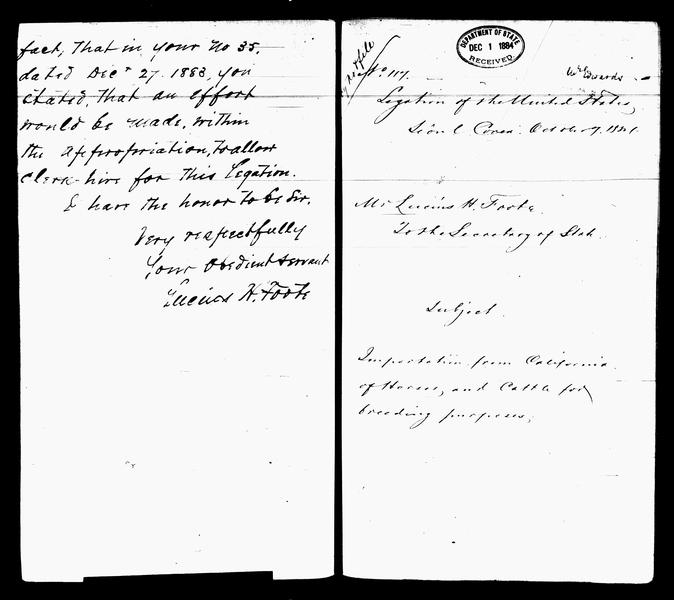 fact, that in your No 35,
dated Decr 27. 1883, you
stated, that an effort
would be made, within
the appropriation, to allow
Clerk-hire for this Legation.
I have the honor to be Sir,
Very respectfully
Your Obedient servant
Lucius H. Foote
file
DEPARTMENT OF STATE
DEC 1 1884
RECEIVED
No 117.
Legation of the United States,
Séoul Corea. October 7, 1884.
Mr Lucius H. Foote
To the Secretary of State.
Subject.
Importation from California
of Horses, and Cattle for
breeding purposes,